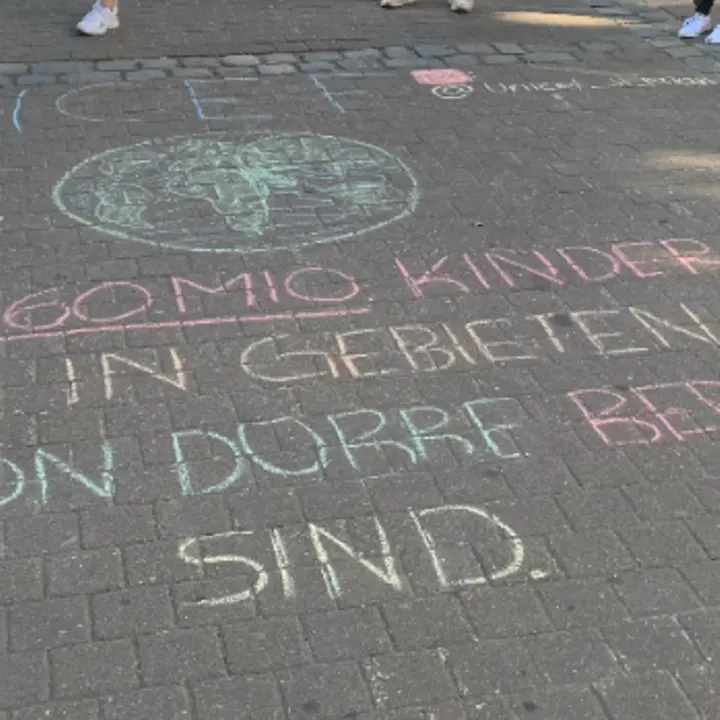 ICEF
60 MIO KINDER
IN GEBIETEN
ON DÜRRE BE
SIND.